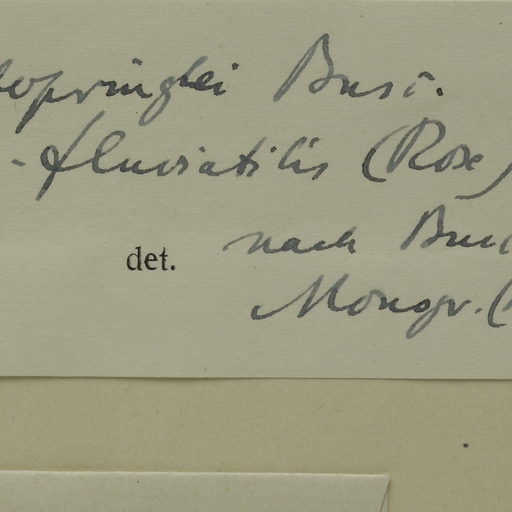 opringlei Busc.
- fluviatilis (Rose)
det. nach Bus
Monogr. (